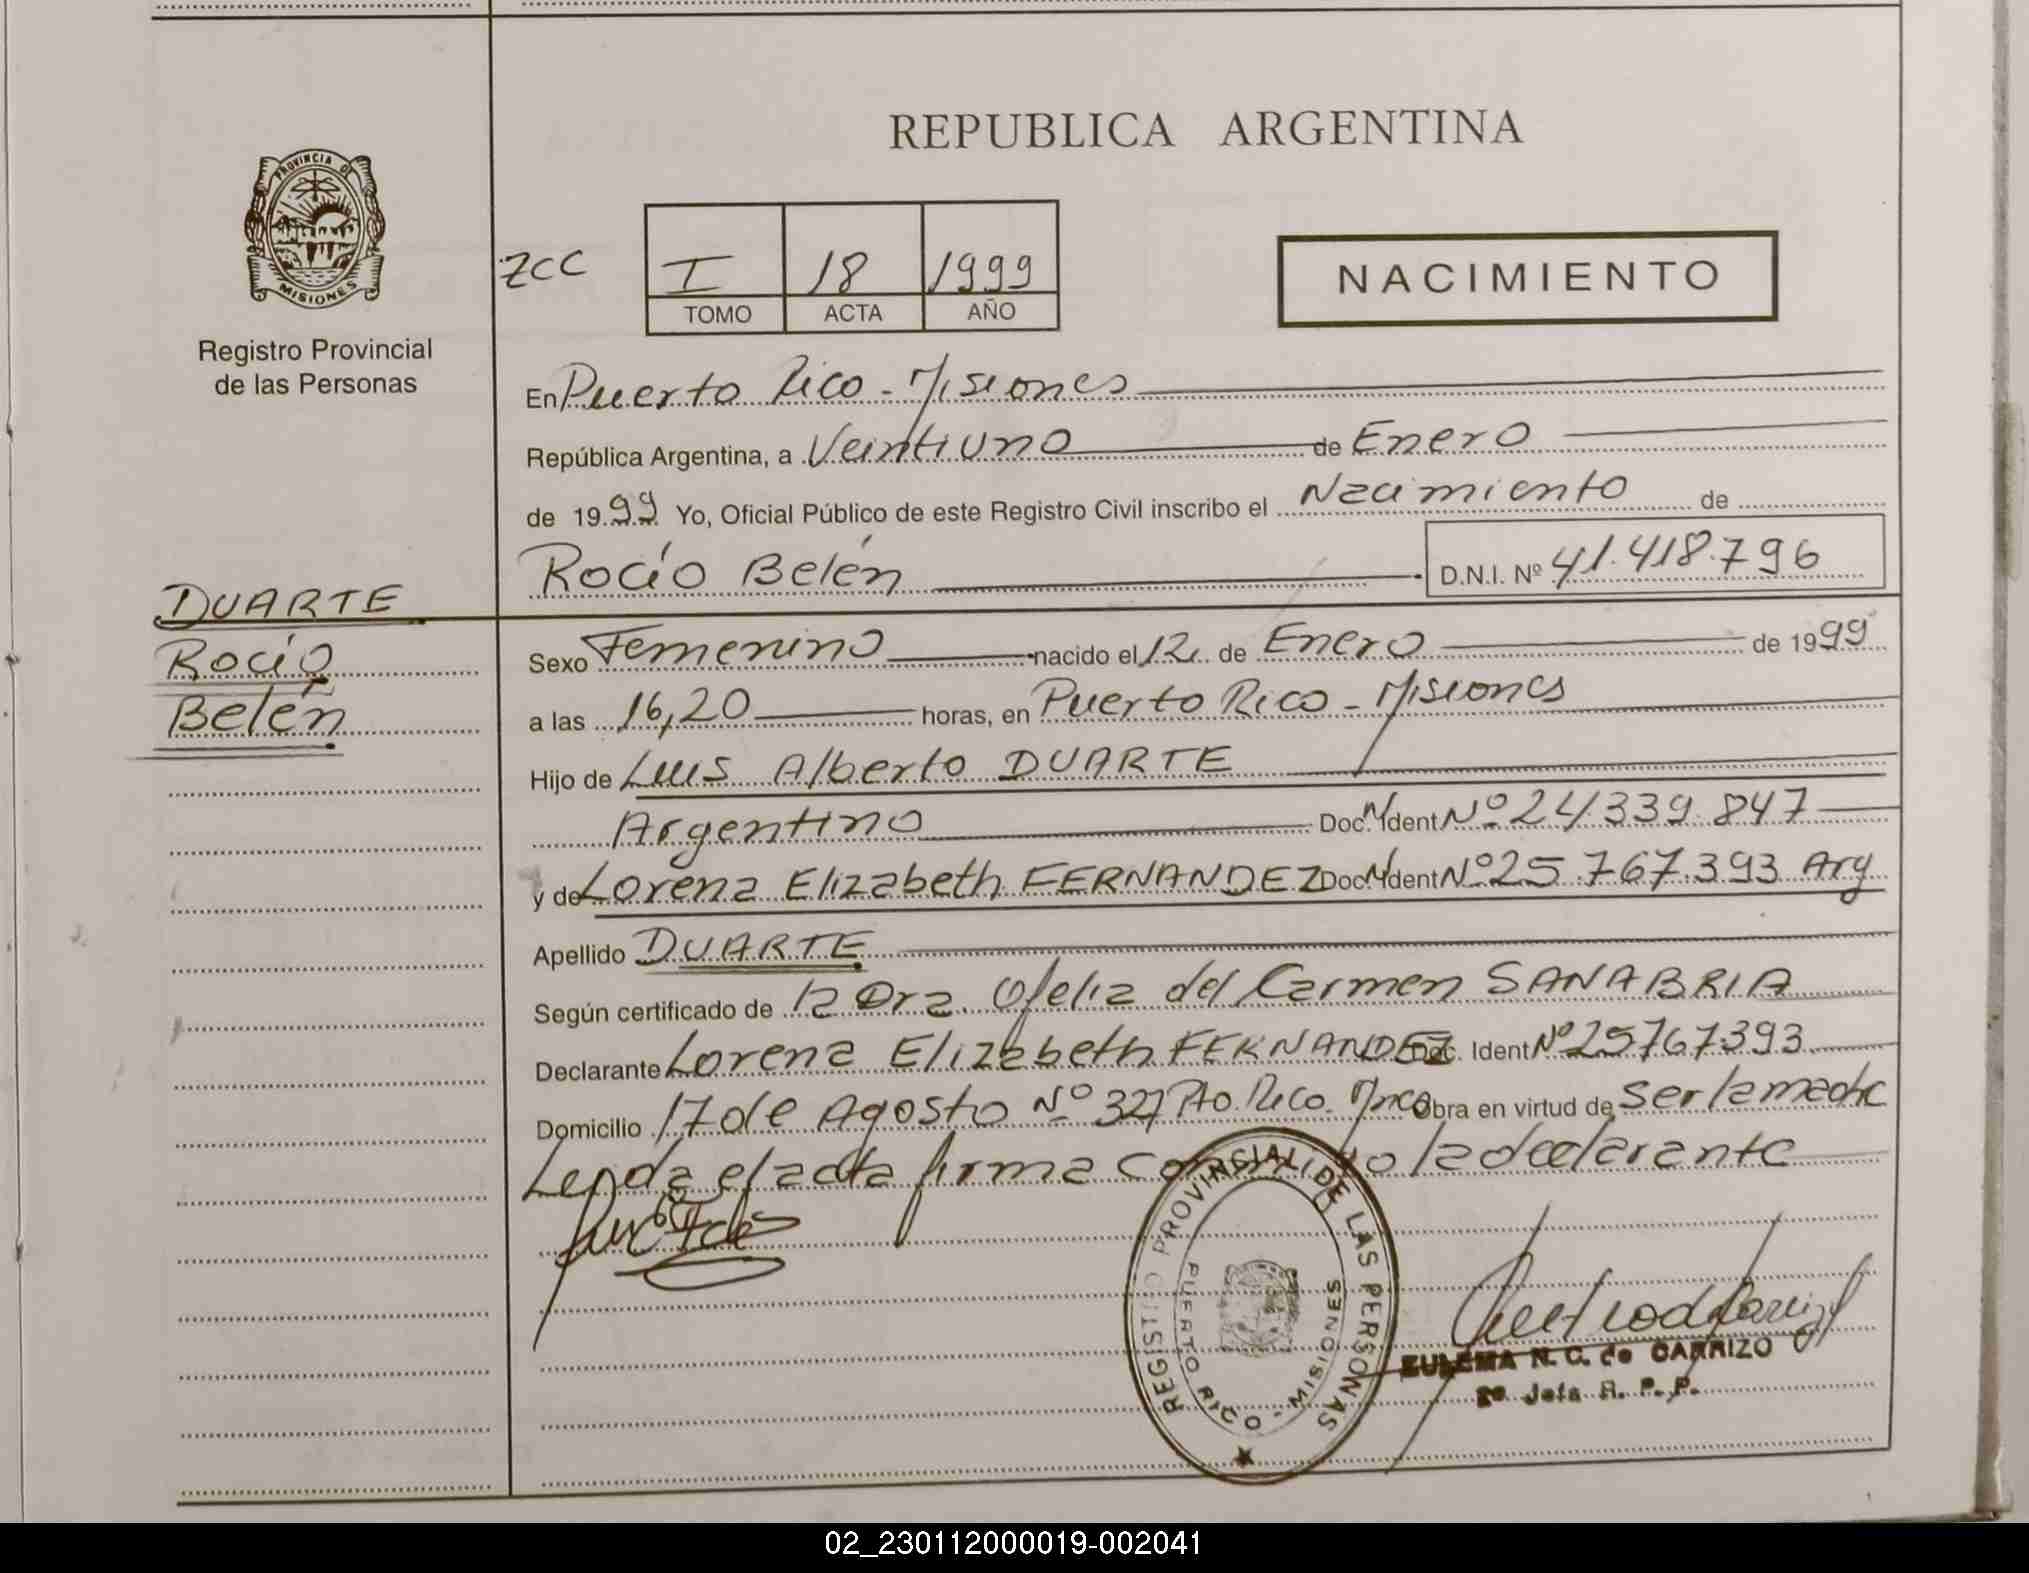 REPUBLICA ARGENTINA
PROVINCIA DE
MISIONES
Registro Provincial
de las Personas
ZCC
I 18 1999
TOMO ACTA AÑO
NACIMIENTO
En Puerto Rico - Misiones
República Argentina, a Veintiuno de Enero
de 1999 Yo, Oficial Público de este Registro Civil inscribo el Nacimiento de
Rocío Belén D.N.I. Nº 41.418.796
DUARTE
Rocío
Belén
Sexo Femenino nacido el 12 de Enero de 1999
a las 16,20 horas, en Puerto Rico - Misiones
Hijo de Luis Alberto DUARTE
Argentino Doc. Ident Nº 24.339.847
y de Lorena Elizabeth FERNANDEZ Doc. Ident Nº 25.767.393 Arg
Apellido DUARTE
Según certificado de la Dra. Ofelia del Carmen SANABRIA
Declarante Lorena Elizabeth FERNANDEZ Doc. Ident Nº 25767393
Domicilio 17 de Agosto Nº 327 Pto. Rico. Mnes Obra en virtud de ser la madre
Leida el acta firma conmigo la declarante
REGISTRO PROVINCIAL DE LAS PERSONAS
PUERTO RICO - MISIONES
EULEMA N. C. de CARRIZO
2º Jefa R. P. P.
02_230112000019-002041